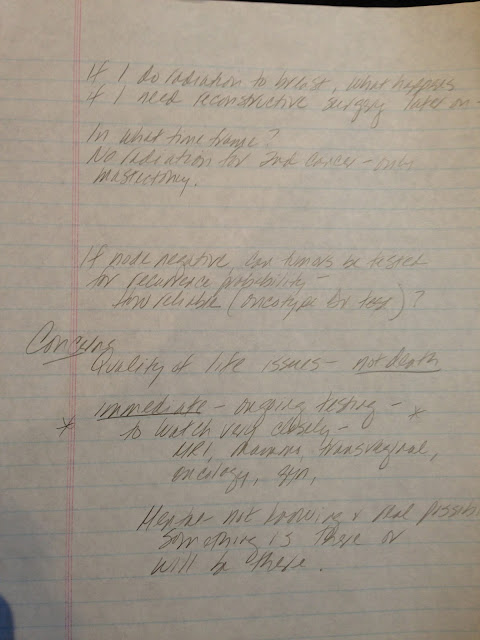 If I do radiation to breast, what happens
if I need reconstructive surgery later on -
In what time frame?
No radiation for 2nd cancer - only
mastectomy.
If node negative can tumors be tested
for recurrence probibility -
how reliable (oncotype DX test)?
Concerns
Quality of life issues - not death
* immediate - ongoing testing - *
to watch very closely -
MRI, mammo, transvaginal,
oncology, gyn,
not knowing & real possibi
something is there or
will be there.